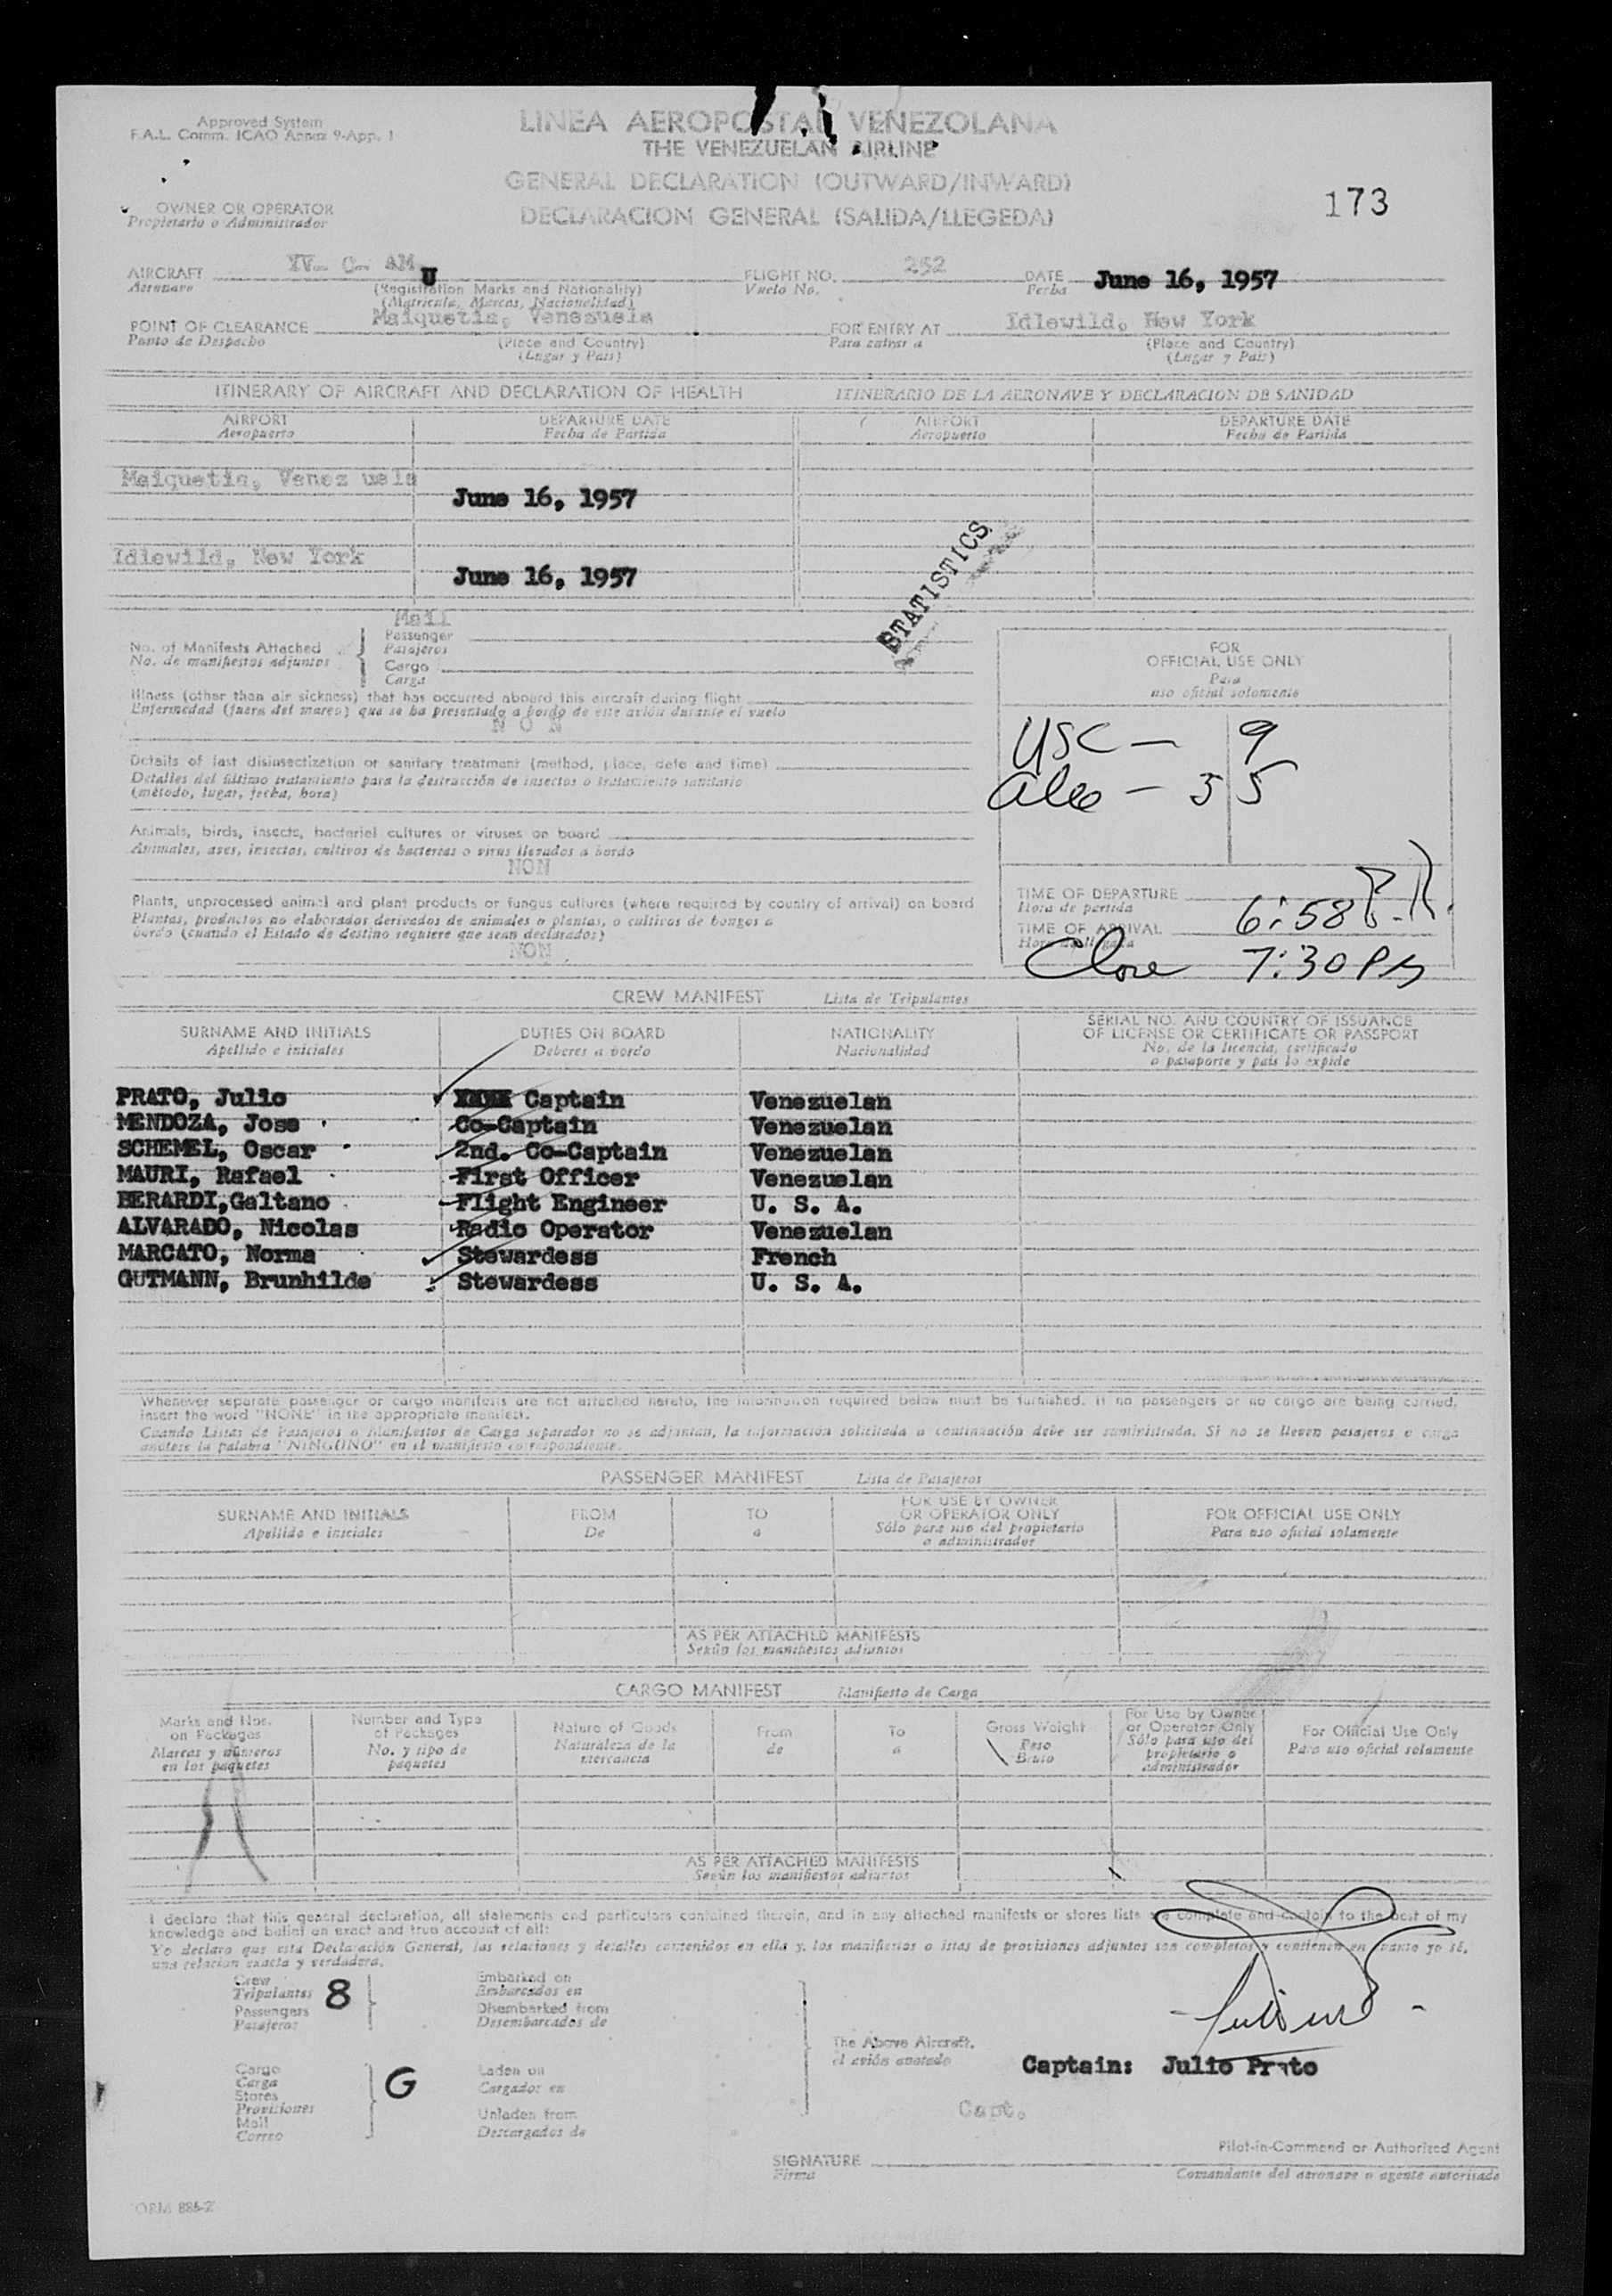 Approved System
F.A.L. Comm. ICAO Annex 9-App. 1
LINEA AEROPOSTAL VENEZOLANA
THE VENEZUELAN AIRLINE
GENERAL DECLARATION (OUTWARD/INWARD)
DECLARACION GENERAL (SALIDA/LLEGEDA)
173
OWNER OR OPERATOR
Propietario o Administrador
AIRCRAFT YV- C- AMU FLIGHT NO. 252 DATE June 16, 1957
Aeronave (Registration Marks and Nationality) Vuelo No. Fecha
(Matricula, Marcas, Nacionalidad)
POINT OF CLEARANCE Maiquetia, Venezuela FOR ENTRY AT Idlewild, New York
Punto de Despacho (Place and Country) Para entrar a (Place and Country)
(Lugar y Pais) (Lugar y Pais)
ITINERARY OF AIRCRAFT AND DECLARATION OF HEALTH ITINERARIO DE LA AERONAVE Y DECLARACION DE SANIDAD
AIRPORT DEPARTURE DATE AIRPORT DEPARTURE DATE
Aeropuerto Fecha de Partida Aeropuerto Fecha de Partida
Maiquetia, Venez uela June 16, 1957
Idlewild, New York June 16, 1957
STATISTICS
Mail
No. of Manifests Attached Passenger
No. de manifiestos adjuntos Pasajeros
Cargo
Carga
FOR
OFFICIAL USE ONLY
Para
uso oficial solamente
Illness (other than air sickness) that has occurred aboard this aircraft during flight
Enfermedad (fuera del mareo) que se ha presentado a bordo de este avión durante el vuelo
N O N
USC - 9
Details of last disinsectization or sanitary treatment (method, place, date and time)
Detalles del último tratamiento para la destrucción de insectos o tratamiento sanitario
(método, lugar, fecha, hora)
- 55
Animals, birds, insects, bacteriel cultures or viruses on board
Animales, aves, insectos, cultivos de bacterias o virus llevados a bordo
NON
Plants, unprocessed animal and plant products or fungus cultures (where required by country of arrival) on board
Plantas, productos no elaborados derivados de animales o plantas, o cultivos de hongos a
bordo (cuando el Estado de destino requiere que sean declarados)
NON
TIME OF DEPARTURE
Hora de partida
6:58 P.M.
TIME OF ARRIVAL
Hora de llegada
Close 7:30 PM
CREW MANIFEST Lista de Tripulantes
SURNAME AND INITIALS DUTIES ON BOARD NATIONALITY SERIAL NO. AND COUNTRY OF ISSUANCE
OF LICENSE OR CERTIFICATE OR PASSPORT
Apellido e iniciales Deberes a bordo Nacionalidad No. de la licencia, certificado
o pasaporte y país lo expide
PRATO, Julio Captain Venezuelan
MENDOZA, Jose Co-Captain Venezuelan
SCHEMEL, Oscar 2nd. Co-Captain Venezuelan
MAURI, Rafael First Officer Venezuelan
BERARDI,Galtano Flight Engineer U. S. A.
ALVARADO, Nicolas Radio Operator Venezuelan
MARCATO, Norma Stewardess French
GUTMANN, Brunhilde Stewardess U. S. A.
Whenever separate passenger or cargo manifests are not attached hereto, the information required below must be furnished. If no passengers or no cargo are being carried,
insert the word "NONE" in the appropriate manifest.
Cuando Listas de Pasajeros o Manifiestos de Carga separados no se adjuntan, la información solicitada a continuación debe ser suministrada. Si no se lleven pasajeros o carga
anótese la palabra "NINGUNO" en el manifiesto correspondiente.
PASSENGER MANIFEST Lista de Pasajeros
SURNAME AND INITIALS FROM TO FOR USE BY OWNER
OR OPERATOR ONLY FOR OFFICIAL USE ONLY
Apellido e iniciales De a Sólo para uso del propietario
o administrador Para uso oficial solamente
AS PER ATTACHED MANIFESTS
Según los manifiestos adjuntos
CARGO MANIFEST Manifiesto de Carga
Marks and Nos.
on Packages
Marcas y números
en los paquetes
Number and Type
of Packages
No. y tipo de
paquetes
Nature of Goods
Naturaleza de la
mercancia
From
de
To
a
Gross Weight
Peso
Bruto
For Use by Owner
or Operator Only
Sólo para uso del
propietario o
administrador
For Official Use Only
Para uso oficial solamente
AS PER ATTACHED MANIFESTS
Según los manifiestos adjuntos
I declare that this general declaration, all statements and particulars contained therein, and in any attached manifests or stores lists are complete and contain to the best of my
knowledge and belief an exact and true account of all:
Yo declaro que esta Declaración General, las relaciones y detalles contenidos en ella y los manifiestos o listas de provisiones adjuntos son completos y contienen en cuanto yo sé,
una relación exacta y verdadera.
Crew
Tripulantes 8
Passengers
Pasajeros
Embarked on
Embarcados en
Disembarked from
Desembarcados de
The Above Aircraft.
el avión anotado
Captain: Julio Prato
Cargo
Carga
Stores
Provisiones
Mail
Correo
G
Laden on
Cargados en
Unladen from
Descargados de
Capt.
SIGNATURE
Firma
Pilot-in-Command or Authorized Agent
Comandante del aeronave o agente autorizado
ORM 885-2